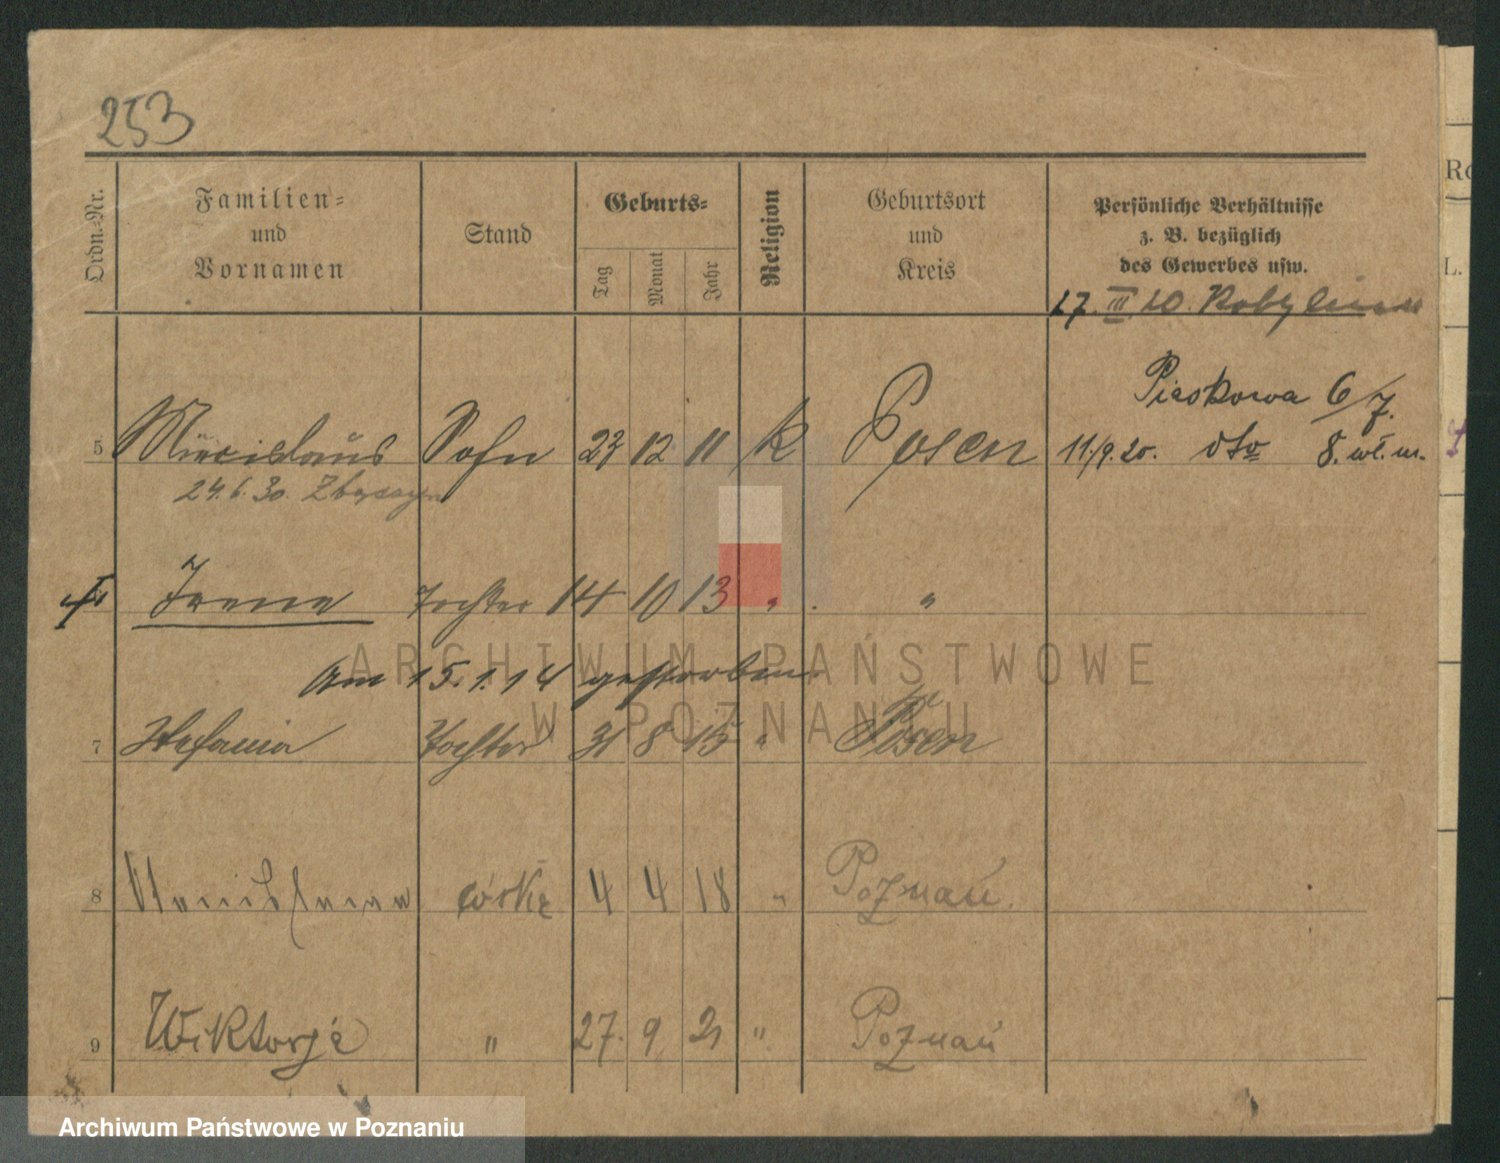 253
Ordn.-Nr.
Familien-
und
Vornamen
Stand
Geburts-
Tag
Monat
Jahr
Religion
Geburtsort
und
Kreis
Persönliche Verhältnisse
z. B. bezüglich
des Gewerbes usw.
17. III 20.
Piaskowa 6/7.
5 Miecislaus Sohn 23 12 11 K Posen 11./9.20. dto 8. wł. m.
24.6.30.
Irene Tochter 14 10 13 " "
Am 15.1.14 gestorben.
7 Stefania Tochter 31 8 15 " Posen
8 córka 4 4 18 " Poznań.
9 Wiktorja " 27. 9 21 " Poznań
Ro
L.
ARCHIWUM PAŃSTWOWE
W POZNANIU
Archiwum Państwowe w Poznaniu